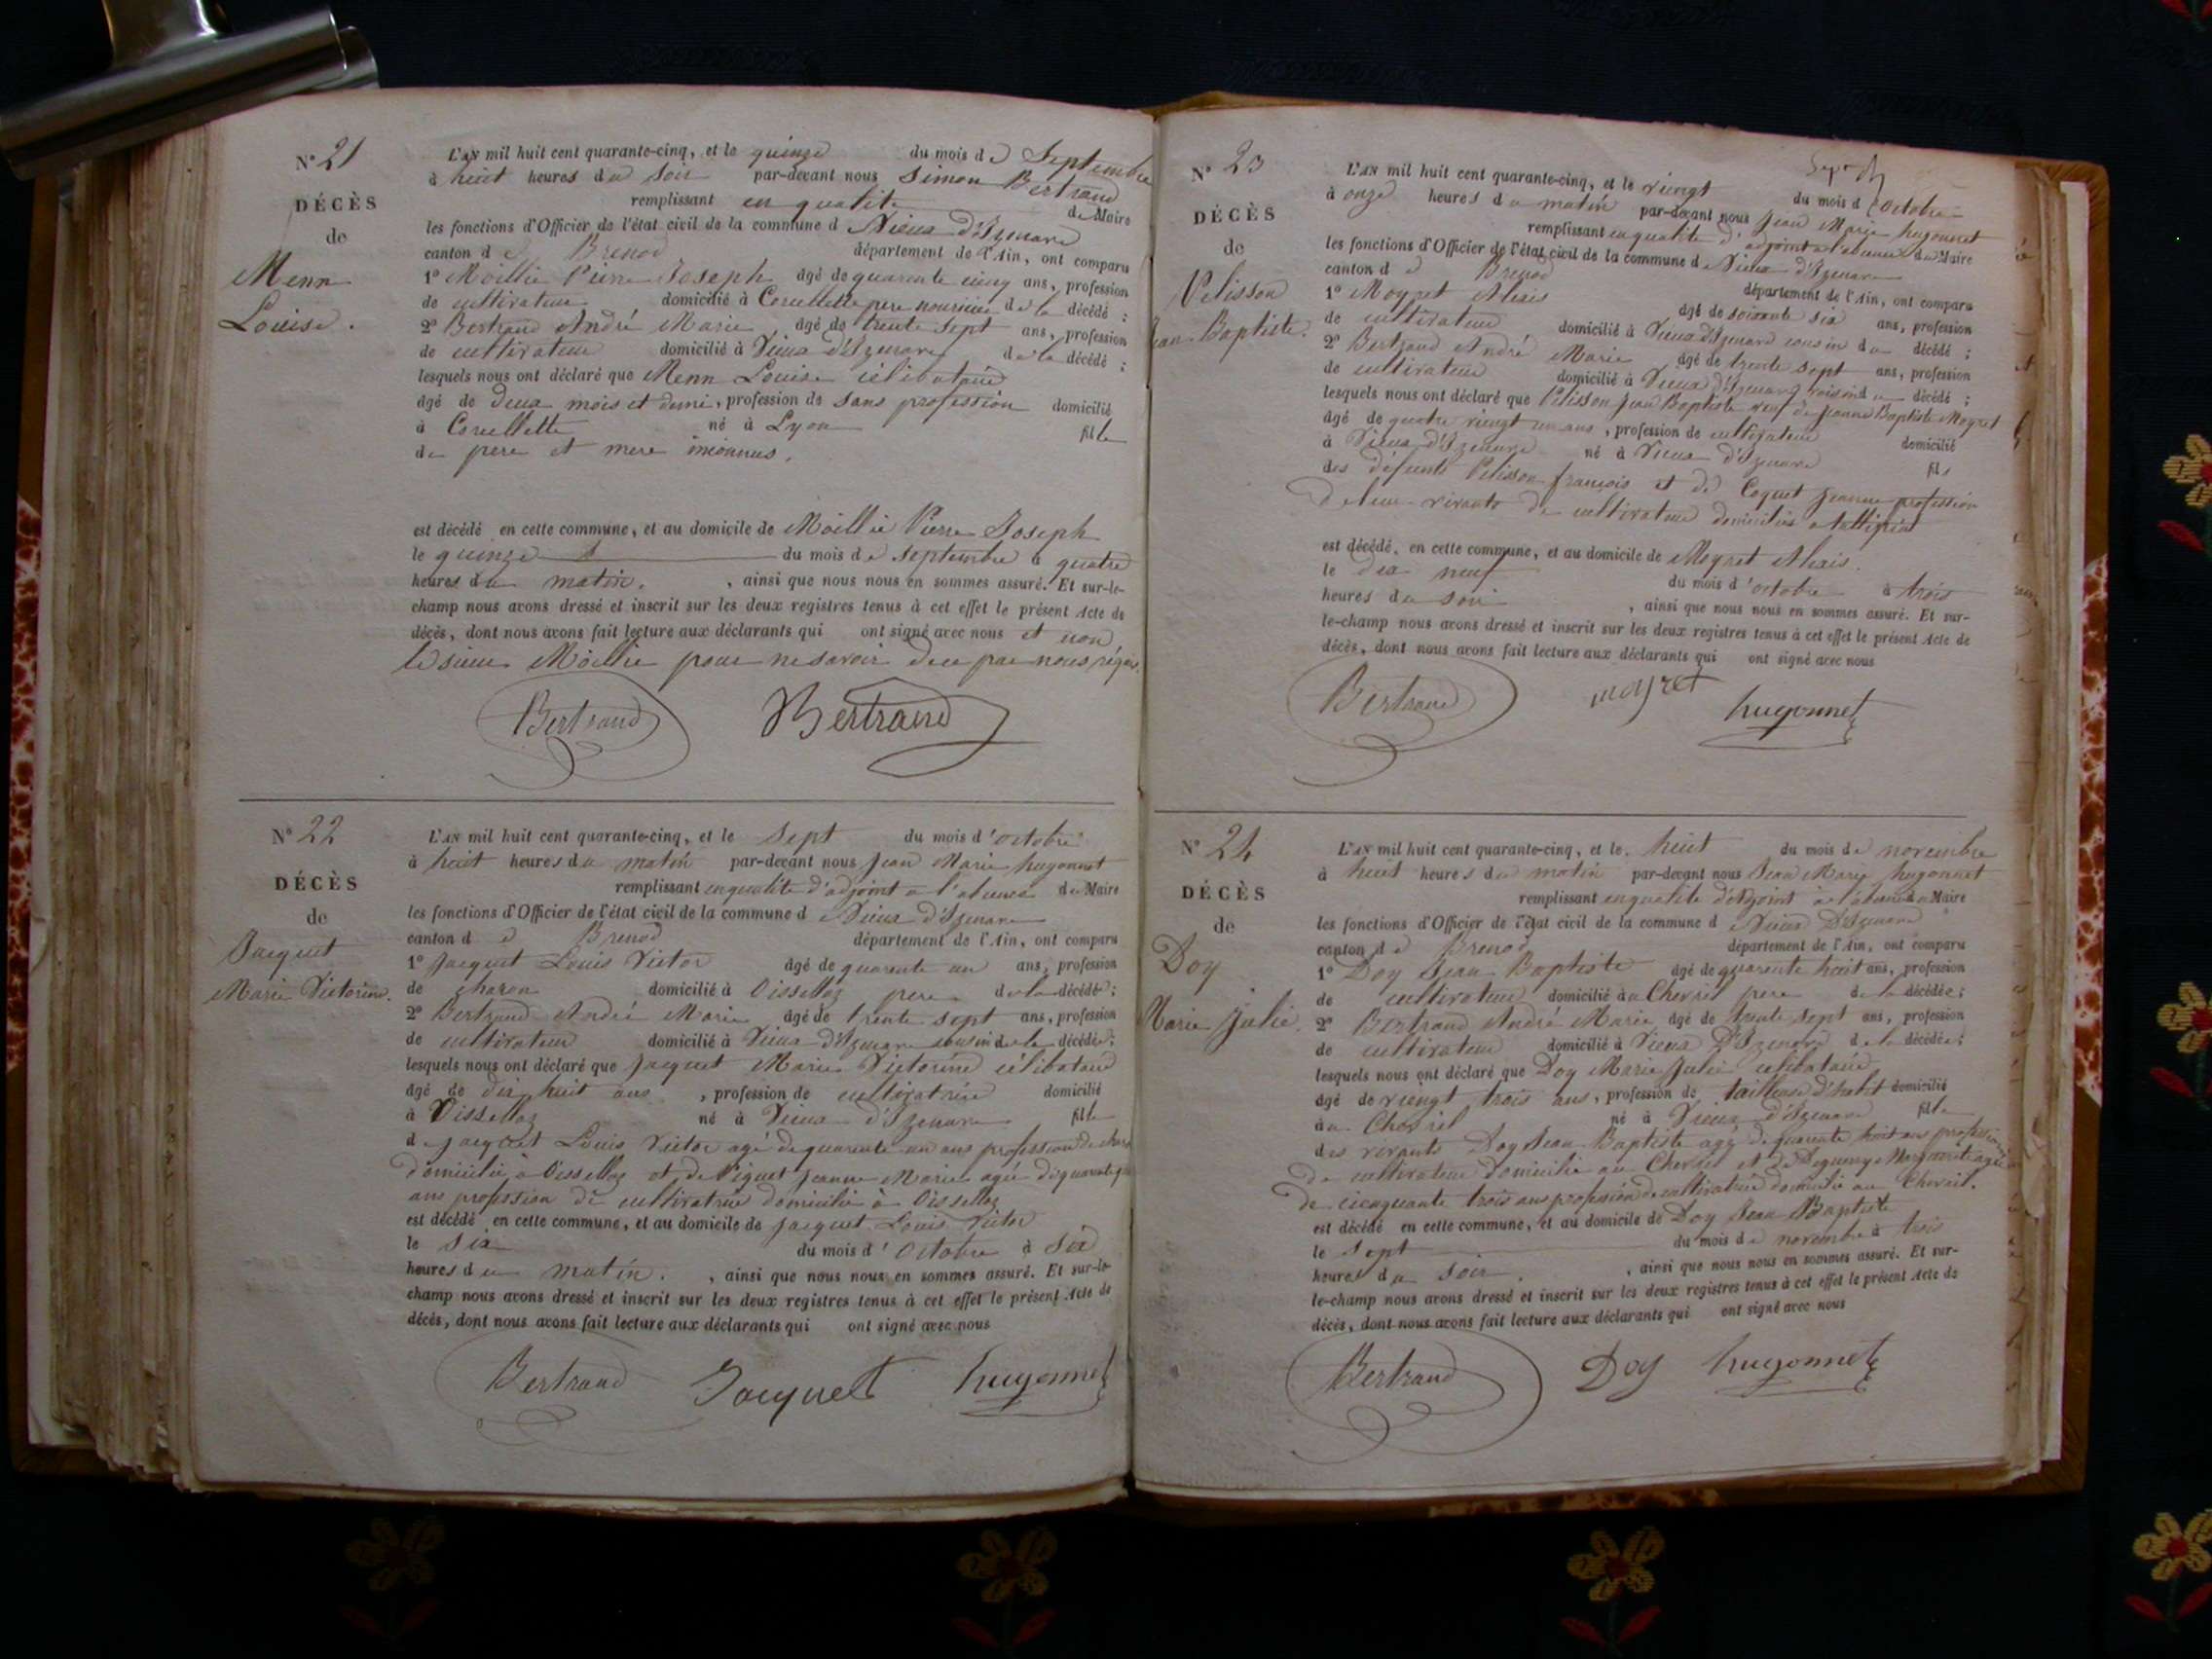 N° 21
DÉCÈS
de
Menn
Louise.
L'AN mil huit cent quarante-cinq, et le quinze du mois de Septembre
à huit heures du soir par-devant nous Simon Bertrand
remplissant en qualité de Maire
les fonctions d'Officier de l'état civil de la commune d Vieux d'Izenave
canton d e Brenod département de l'Ain, ont comparu
1° Moillie Pierre Joseph âgé de quarante cinq ans, profession
de cultivateur domicilié à Corcellette pere nouricier de la décédé ;
2° Bertrand André Marie, âgé de trente sept ans, profession
de cultivateur domicilié à Vieux d'Izenave de la décédé ;
lesquels nous ont déclaré que Menn Louise célibataire
âgé de deux mois et demi, profession de sans profession domicilié
à Corcellette né à Lyon fille
de pere et mere inconnus.
est décédé en cette commune, et au domicile de Moillie Pierre Joseph
le quinze du mois de septembre à quatre
heures du matin. , ainsi que nous nous en sommes assuré. Et sur-le-
champ nous avons dressé et inscrit sur les deux registres tenus à cet effet le présent Acte de
décès, dont nous avons fait lecture aux déclarants qui ont signé avec nous et non
le sieur Moillie pour ne savoir de ce par nous réquis.
Bertrand Bertrand
N° 22
DÉCÈS
de
Jacquet
Marie Victorine.
L'AN mil huit cent quarante-cinq, et le sept du mois d'octobre
à huit heures du matin par-devant nous Jean Marie hugonnet
remplissant en qualité d'adjoint a l'absence du Maire
les fonctions d'Officier de l'état civil de la commune d Vieux d'Izenave
canton d e Brenod département de l'Ain, ont comparu
1° Jacquet Louis Victor âgé de quarante un ans, profession
de charon domicilié à Oissellaz pere de la décédé ;
2° Bertrand André Marie âgé de trente sept ans, profession
de cultivateur domicilié à Vieux d'Izenave cousin de la décédée ;
lesquels nous ont déclaré que Jacquet Marie Victorine célibataire
âgé de dix huit ans , profession de cultivatrice domicilié
à Oissellaz né à Vieux d'Izenave fille
de Jacquet Louis Victor agé de quarante un ans profession de
domicilié à Oissellaz et de Piguet Jeanne Marie agée de
ans profession de cultivatrice domicilié à Oissellaz
est décédé en cette commune, et au domicile de Jacquet Louis Victor
le six du mois d'Octobre à six
heures du matin. , ainsi que nous nous en sommes assuré. Et sur-le-
champ nous avons dressé et inscrit sur les deux registres tenus à cet effet le présent Acte de
décès, dont nous avons fait lecture aux déclarants qui ont signé avec nous
Bertrand Jacquet hugonnet
N° 23
DÉCÈS
de
Pelisson
Jean Baptiste.
L'AN mil huit cent quarante-cinq, et le vingt du mois d'octobre
à onze heures du matin par-devant nous Jean Marie hugonnet
remplissant en qualité d'adjoint a l'absence du Maire
les fonctions d'Officier de l'état civil de la commune d Vieux d'Izenave
canton d e Brenod département de l'Ain, ont comparu
1° Moyret Alexis âgé de soixante six ans, profession
de cultivateur domicilié à Vieux d'Izenave cousin du décédé ;
2° Bertrand André Marie âgé de trente sept ans, profession
de cultivateur domicilié à Vieux d'Izenave voisin du décédé ;
lesquels nous ont déclaré que Pelisson Jean Baptiste veuf de Jeanne Baptiste Moyret
âgé de quatre vingt un ans , profession de cultivateur domicilié
à Vieux d'Izenave né à Vieux d'Izenave fils
des défunts Pelisson françois et de Coquet Jeanne profession
de leur vivants de cultivateur domiciliés a
est décédé, en cette commune, et au domicile de Moyret Alexis.
le dix neuf du mois d'octobre à trois
heures du soir , ainsi que nous nous en sommes assuré. Et sur-
le-champ nous avons dressé et inscrit sur les deux registres tenus à cet effet le présent Acte de
décès, dont nous avons fait lecture aux déclarants qui ont signé avec nous
Bertrand moyret hugonnet
N° 24
DÉCÈS
de
Doy
Marie Julie.
L'AN mil huit cent quarante-cinq, et le huit du mois de novembre
à huit heures du matin par-devant nous Jean Marie hugonnet
remplissant en qualité d'adjoint a l'absence du Maire
les fonctions d'Officier de l'état civil de la commune d Vieux D'Izenave
canton d e Brenod département de l'Ain, ont comparu
1° Doy Jean Baptiste âgé de quarante huit ans, profession
de cultivateur domicilié au Chevril pere de la décédée ;
2° Bertrand André Marie âgé de trente sept ans, profession
de cultivateur domicilié à Vieux D'Izenave de la décédée ;
lesquels nous ont déclaré que Doy Marie Julie célibataire
âgé de vingt trois ans, profession de tailleuse d'habit domicilié
au Chevril né à Vieux d'Izenave fille
des vivants Doy Jean Baptiste agé de quarante huit ans profession
de cultivateur domicilié au Chevril et de Marguerite agée
de cinquante trois ans profession de cultivatrice domicilié au Chevril.
est décédé en cette commune, et au domicile de Doy Jean Baptiste
le sept du mois de novembre à trois
heures du soir. , ainsi que nous nous en sommes assuré. Et sur-
le-champ nous avons dressé et inscrit sur les deux registres tenus à cet effet le présent Acte de
décès, dont nous avons fait lecture aux déclarants qui ont signé avec nous
Bertrand Doy hugonnet